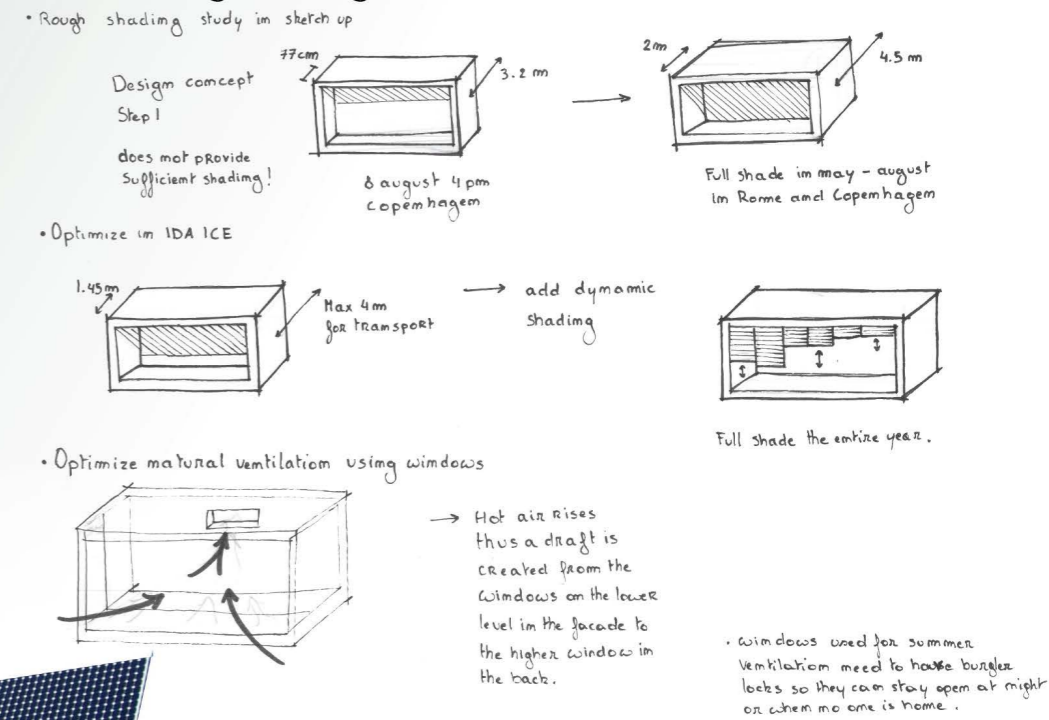 • Rough shading study in sketch up
Design concept
Step 1
does not provide
Sufficient shading!
77cm
3.2 m
8 august 4 pm
Copenhagen
2m
4.5 m
Full shade in may - august
in Rome and Copenhagen
• Optimize in IDA ICE
1.45m
Max 4m
for transport
add dynamic
Shading
Full shade the entire year.
• Optimize natural ventilation using windows
Hot air rises
thus a draft is
created from the
windows on the lower
level in the facade to
the higher window in
the back.
• windows used for summer
ventilation need to have burgler
locks so they can stay open at night
or when no one is home.